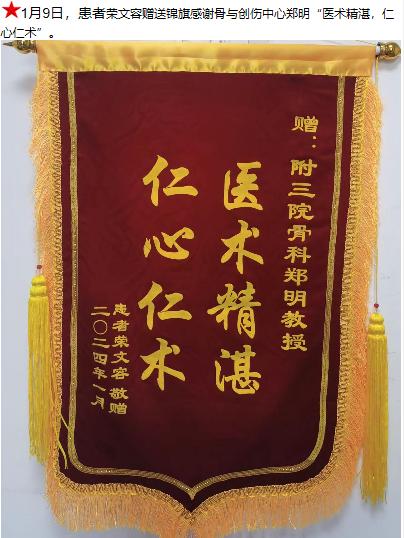 ★1月9日，患者荣文容赠送锦旗感谢骨与创伤中心郑明“医术精湛，仁
心仁术”。
赠：附三院骨科郑明教授
医术精湛
仁心仁术
患者荣文容 敬赠
二〇二四年一月